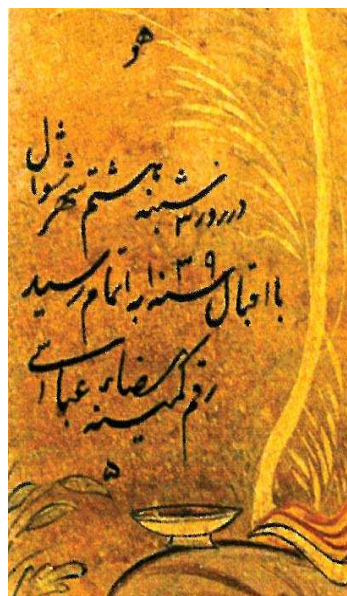 هو
در روز ۳ شنبه هشتم شهر شوال
با اقبال سنه ۱۰۳۹ به اتمام رسید
رقم کمینه رضاء عباسی
۵